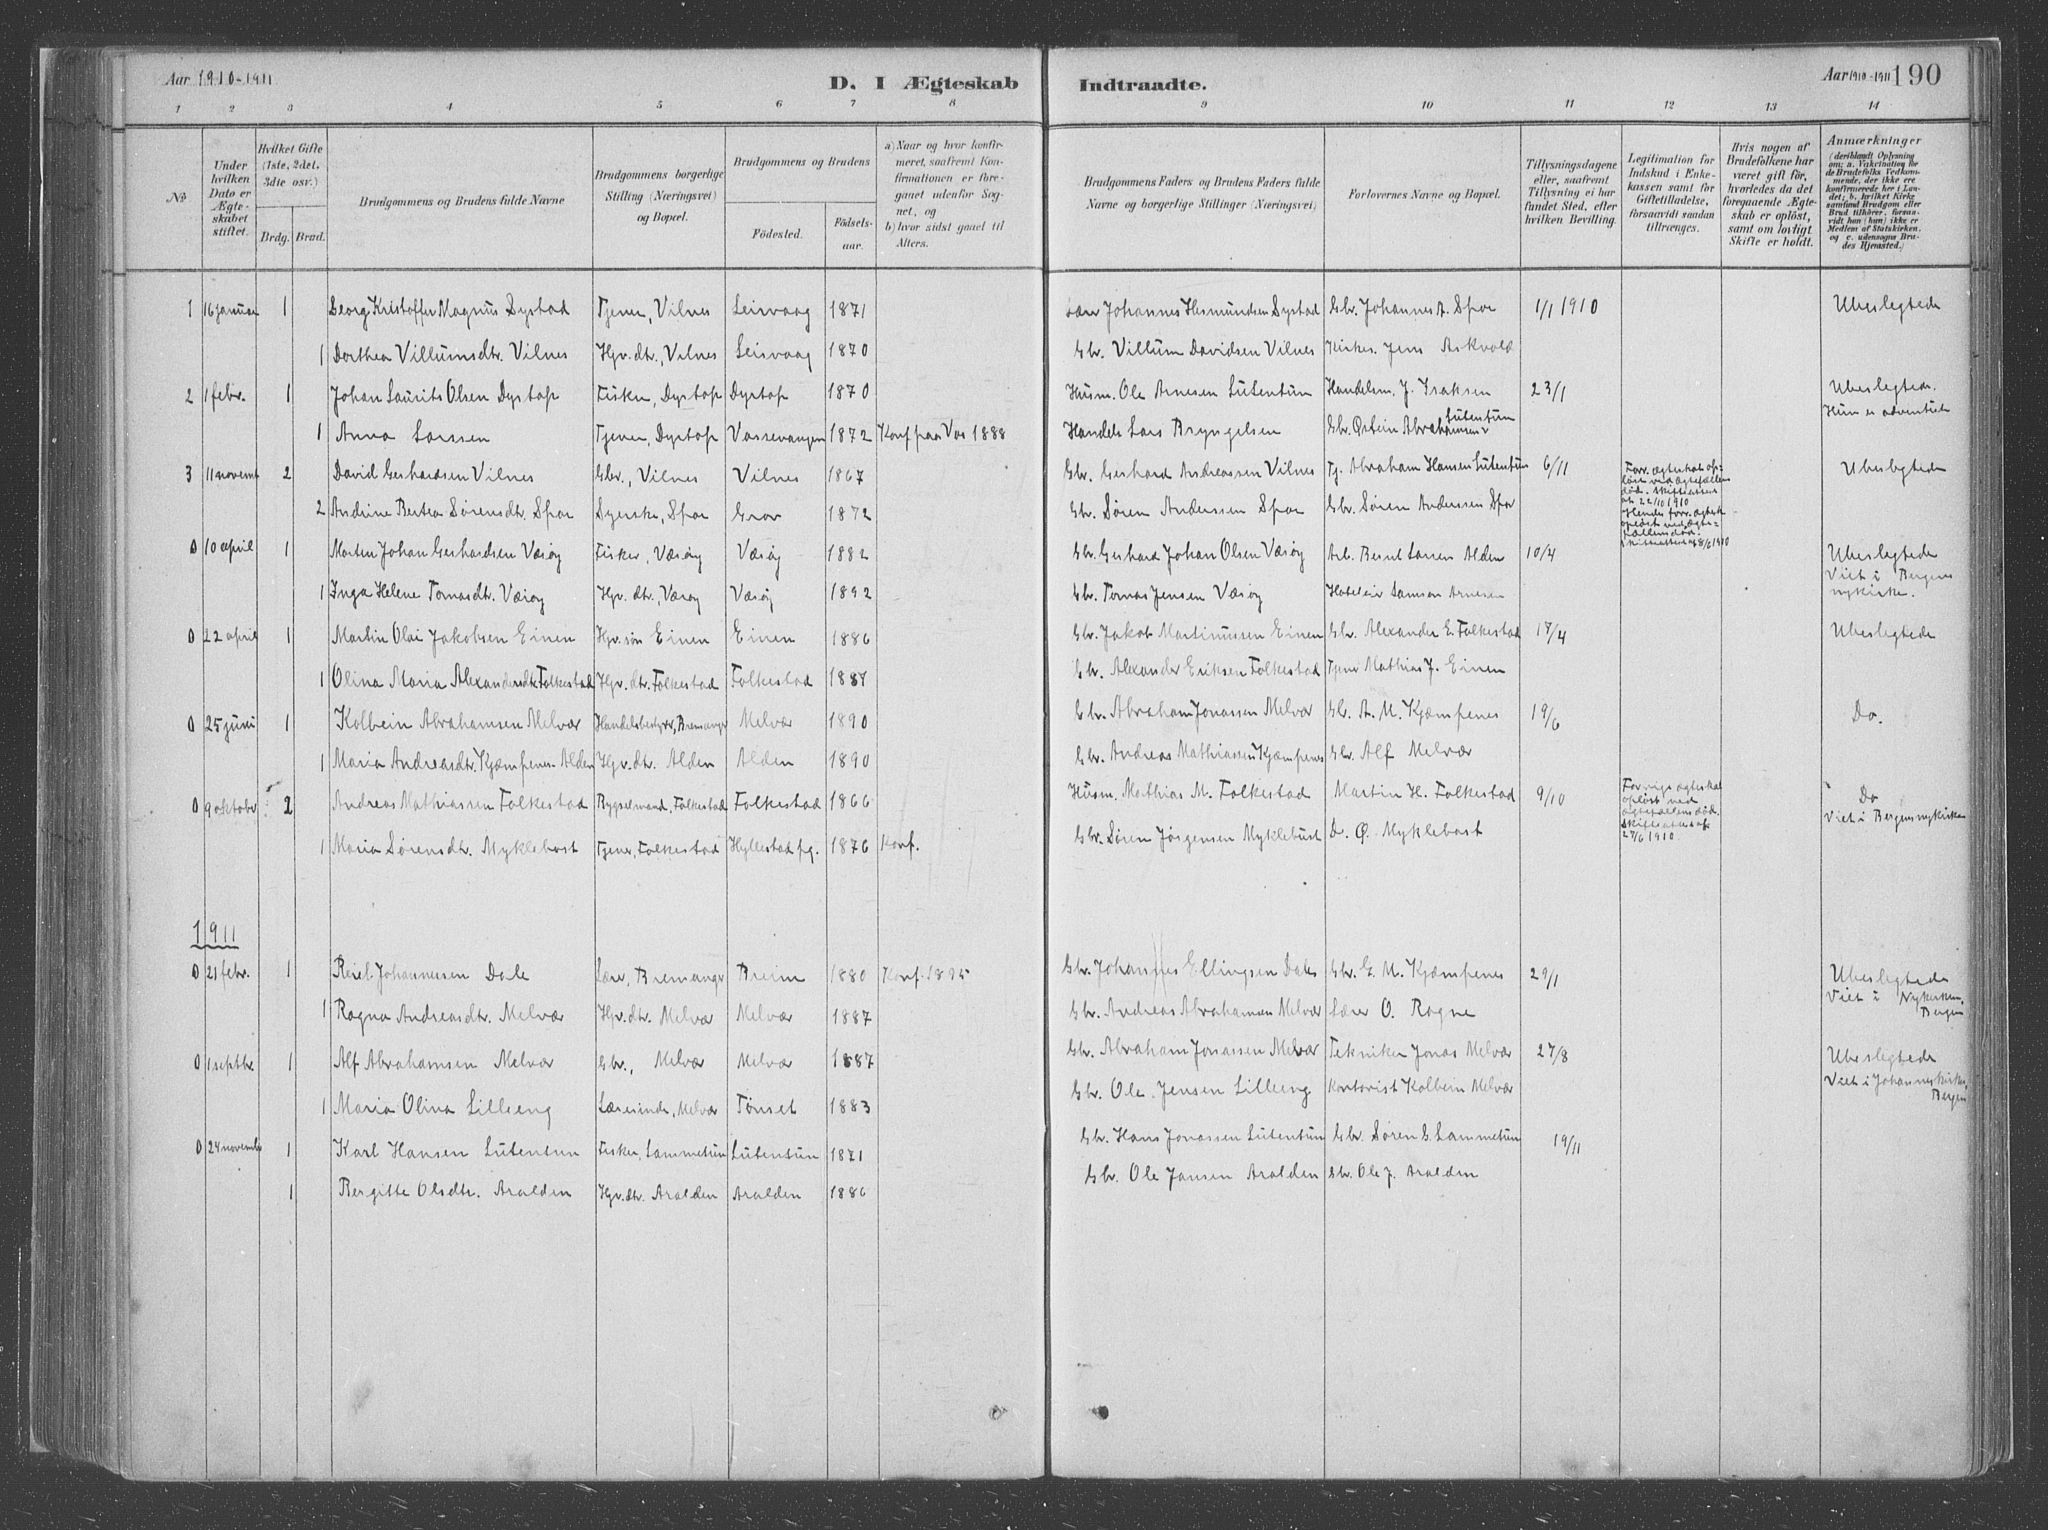 Aar 1910-1911
D. I Ægteskab
Indtraadte.
Aar 1910-1911 190
1 2 3 4 5 6 7 8 9 10 11 12 13 14
No.
Under hvilken Dato er Ægteskabet stiftet.
Hvilket Gifte (1ste, 2det, 3die osv.)
Brdg. Brud.
Brudgommens og Brudens fulde Navne
Brudgommens borgerlige Stilling (Næringsvei) og Bopæl.
Brudgommens og Brudens
Födested.
Födselsaar.
a) Naar og hvor konfirmeret, saafremt Konfirmationen er foregaaet udenfor Sognet, og
b) hvor sidst gaaet til Alters.
Brudgommens Faders og Brudens Faders fulde Navne og borgerlige Stillinger (Næringsvei)
Forlovernes Navne og Bopæl.
Tillysningsdagene eller, saafremt Tillysning ei har fundet Sted, efter hvilken Bevilling.
Legitimation for Indskud i Enkekassen samt for Giftetilladelse, forsaavidt saadan tiltrænges.
Hvis nogen af Brudefolkene har været gift før, hvorledes da det foregaaende Ægteskab er opløst, samt om lovligt Skifte er holdt.
Anmærkninger (deriblandt Oplysning om: a. Vakcination for de Brudefolks Vedkommende, der ikke ere konfirmerede her i Landet; b. hvilket Kirkesamfund Brudgom eller Brud tilhører, forsaavidt han (hun) ikke er Medlem af Statskirken, og c. udensogns Brudes Hjemsted.)
1 16 januar 1 Georg Kristoffer Magnus Dystad Tjener, Vilnes Leirvaag 1871 Lær Johannes Hesmundsen Dystad Gbr. Johannes A. Spor 1/1 1910 Ubeslegtede
1 Dorthea Villumsdtr. Vilnes Hgv.dtr, Vilnes Leirvaag 1870 Gbr. Villum Davidsen Vilnes Kirkes. Jens Askvold
2 1 febr. 1 Johan Laurits Olsen Dystop Fisker, Dystop Dystop 1870 Husm. Ole Arnesen Lutentun Handelsm. J. Isaksen 23/1 Ubeslegtede.
Hun er adventist
1 Anna Larssen Tjener, Dystop Vossevangen 1872 Konf paa Vos 1888 Handels Lars Bryngelsen Gbr. Østein Abrahamsen Lutentun
3 11 novemb 2 David Gerhardsen Vilnes Gbr., Vilnes Vilnes 1867 Gbr. Gerhard Andreassen Vilnes Tj. Abraham Hansen Lutentun 6/11 Forr. ægteskab opløst ved ægtefællens død. Skifteattest af 22/10 1910 Ubeslegtede
2 Andrine Bertea Sørensdtr. Spor Dyrsk., Spor Grov 1872 Gbr. Søren Anderssen Spor Gbr. Søren Anderssen Spor Hendes forr. ægtesk. opløst ved ægtefællens død. Skifteattest af 8/6 1910
0 10 april 1 Martin Johan Gerhardsen Værøy Fisker, Værøy Værøy 1882 Gbr. Gerhard Johan Olsen Værøy Arb. Bernt Larsen Alden 10/4 Ubeslegtede
Viet i Bergens nykirke.
1 Inga Helene Tomasdtr. Værøy Hgv.dtr, Værøy Værøy 1892 Gbr. Tomas Jensen Værøy Hoteleier Samson Arnesen
0 22 april 1 Martin Olai Jakobsen Einen Hgv.søn Einen Einen 1886 Gbr. Jakob Martinussen Einen Gbr. Alexander E. Folkestad 17/4 Ubeslegtede
1 Olina Maria Alexandersdtr. Folkestad Hgv.dtr. Folkestad Folkestad 1887 Gbr. Alexander Eriksen Folkestad Tjener Mathias J. Einen
0 25 juni 1 Kolbein Abrahamsen Melvær Handelsbestyrer, Bremanger Melvær 1890 Gbr. Abraham Jonassen Melvær Gbr. A. M. Kjempenes 19/6 Do.
1 Maria Andreasdtr. Kjæmpenes Alden Hgv.dtr. Alden Alden 1890 Gbr. Andreas Mathiassen Kjæmpenes Gbr. Alf Melvær
0 9 oktober 2 Andreas Mathiassen Folkestad Bygselmand, Folkestad Folkestad 1866 Husm. Mathias M. Folkestad Martin H. Folkestad 9/10 Forrige ægteskab opløst ved ægtefællens død. Skifteattest af 27/6 1910 Do
Viet i Bergens nykirke
1 Maria Sørensdtr. Myklebost Tjener, Folkestad Hyllestad pg. 1876 Konf. Gbr. Søren Jørgensen Myklebust D. Ø. Myklebost
1911
0 21 febr. 1 Johannessen Dale Lærer, Bremanger Breim 1880 Konf. 1895 Gbr. Johannes Ellingsen Dale Gbr. G. M. Kjæmpenes 29/1 Ubeslegtede
Viet i Nykirken, Bergen
1 Ragna Andreasdtr. Melvær Hgv.dtr. Melvær Melvær 1887 Gbr. Andreas Abrahamsen Melvær Lærer O. Rogne
0 1 septbr. 1 Alf Abrahamsen Melvær Gbr., Melvær Melvær 1887 Gbr. Abraham Jonassen Melvær Tekniker Jonas Melvær 27/8 Ubeslegtede
Viet i Johanneskirken, Bergen
1 Maria Olina Lilleeng Lærerinde, Melvær Tønset 1883 Gbr. Ole Jensen Lilleeng Kontorist Kolbein Melvær
0 24 novemb. 1 Karl Hansen Lutentun Fisker, Lammetun Lutentun 1871 Gbr. Hans Jonassen Lutentun Gbr. Søren G. Lammetun 19/11
1 Bergitte Olsdtr. Aralden Hgv.dtr. Aralden Aralden 1886 Gbr. Ole Jansen Aralden Gbr. Ole J. Aralden